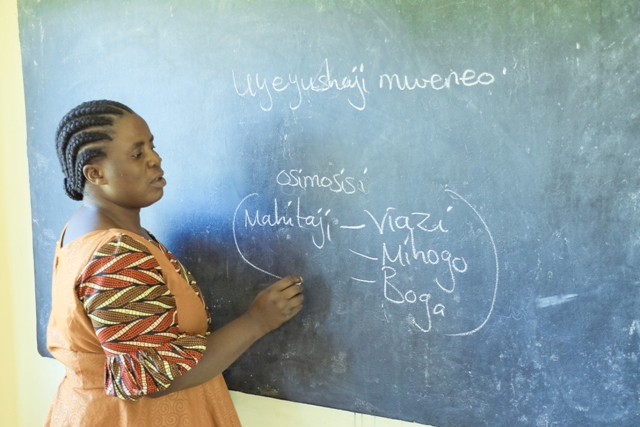 Uyeyushaji mweneo
osimosisi
Mahitaji – Viazi
– Mihogo
– Boga